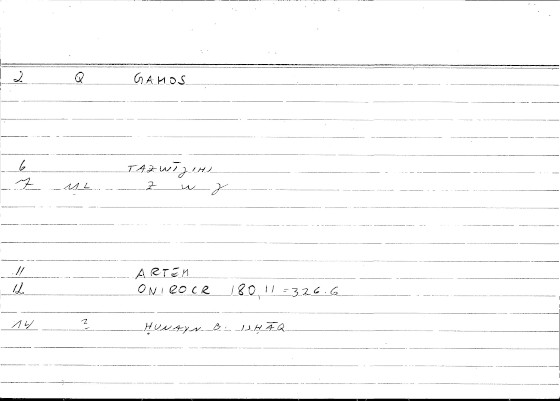 2 Q GAMOS
6 TAZWĪǧIHI
7 ML Z W ǧ
11 ARTEM
12 ONIROCR 180,11 = 326.6
14 2 ḤUNAYN B. ISḤĀQ